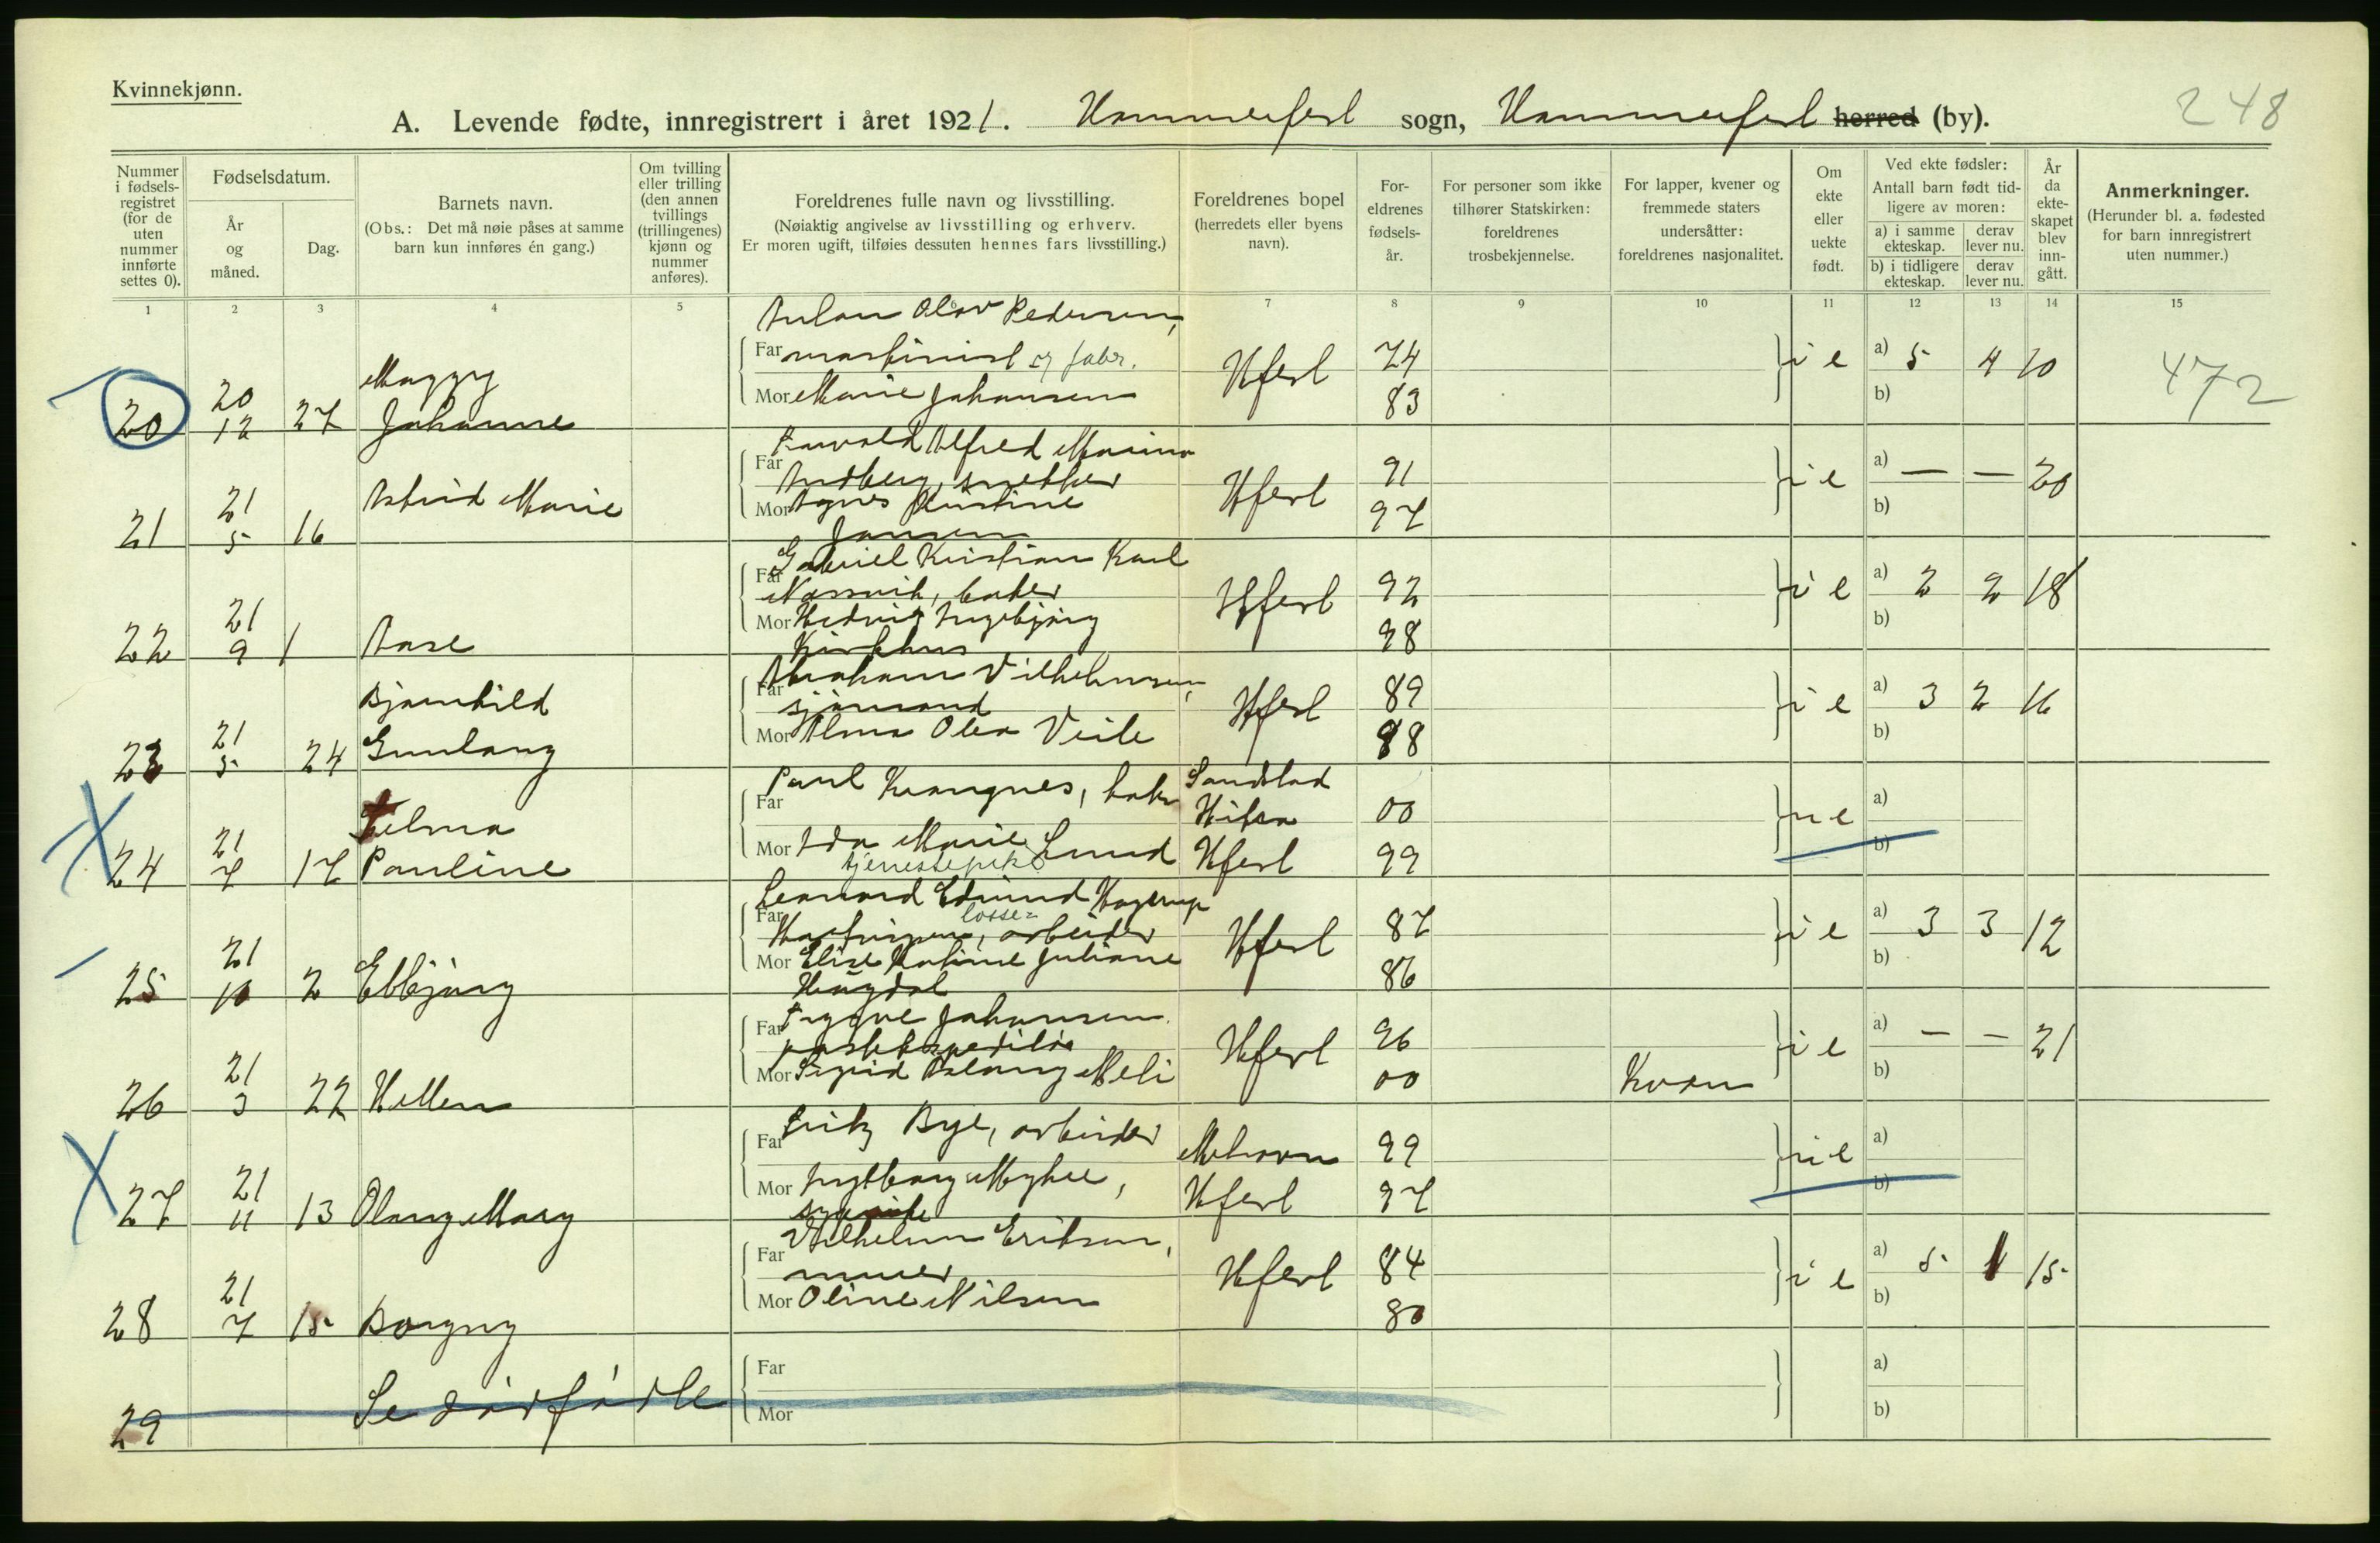 Kvinnekjønn.
A. Levende fødte, innregistrert i året 1921. Hammerfest sogn, Hammerfest herred (by). 248
Nummer i fødsels-registret (for de uten nummer innførte settes 0).
Fødselsdatum.
År og måned.
Dag.
Barnets navn.
(Obs.: Det må nøie påses at samme barn kun innføres én gang.)
Om tvilling eller trilling (den annen tvillings (trillingenes) kjønn og nummer anføres).
Foreldrenes fulle navn og livsstilling.
(Nøiaktig angivelse av livsstilling og erhverv.
Er moren ugift, tilføies dessuten hennes fars livsstilling.)
Foreldrenes bopel
(herredets eller byens navn).
For-eldrenes fødsels-år.
For personer som ikke tilhører Statskirken: foreldrenes trosbekjennelse.
For lapper, kvener og fremmede staters undersåtter: foreldrenes nasjonalitet.
Om ekte eller uekte født.
Ved ekte fødsler:
Antall barn født tid-ligere av moren:
a) i samme ekteskap. derav lever nu.
b) i tidligere ekteskap. derav lever nu.
År da ekte-skapet blev inn-gått.
Anmerkninger.
(Herunder bl. a. fødested for barn innregistrert uten nummer.)
1 2 3 4 5 6 7 8 9 10 11 12 13 14 15
Anton Olav Pedersen,
Far maskinist og fabr. Hfest 74 i e a) 5 4 10 472
Maggy
Mor Marie Johansen 83 b)
20 20 12 27 Johanne
Torvald Alfred Marino
Far Andberg, snekker Hfest 91 i e a) — — 20
Astrid Marie
Mor Agnes Kristine 97 b)
21 21 5 16 Jansen
Gabriel Kristian Karl
Far Nossvik, baker Hfest 92 i e a) 2 2 18
Mor Hedvig Ingebjørg 98 b)
22 21 9 1 Aase Kirkhus
Abraham Vilhelmsen,
Far sjømand Hfest 89 i e a) 3 2 16
Bjarnhild
Mor Alma Olea Veile 88 b)
23 21 5 24 Gunlaug
Paul Krangnes, baker Sandstad
Far Hitra 00 u e a)
Selma
Mor Ida Marie Lund Hfest 99 b)
tjenestepike
24 21 7 17 Pauline
Leonard Edmund Hagerup
losse-
Far arbeider Hfest 87 i e a) 3 3 12
Mor Elise Katinie Juliane 86 b)
25 21 10 2 Ebbjørg Haugdal
Trygve Johansen
Far postekspeditør Hfest 96 i e a) — — 21
Mor Sigrid Aslaug Meli 00 Kvæn b)
26 21 3 22 Hellen
Far Fritz Bye, arbeider Mehavn 99 u e a)
Mor Ingeborg Myhre, Hfest 97 b)
27 21 11 13 Olaug Mary
Vilhelm Eriksen,
Far murer Hfest 84 i e a) 5 1 15
Mor Oline Nilsen 80 b)
28 21 7 15 Borgny
Far a)
29 Se dødfødte
Mor b)